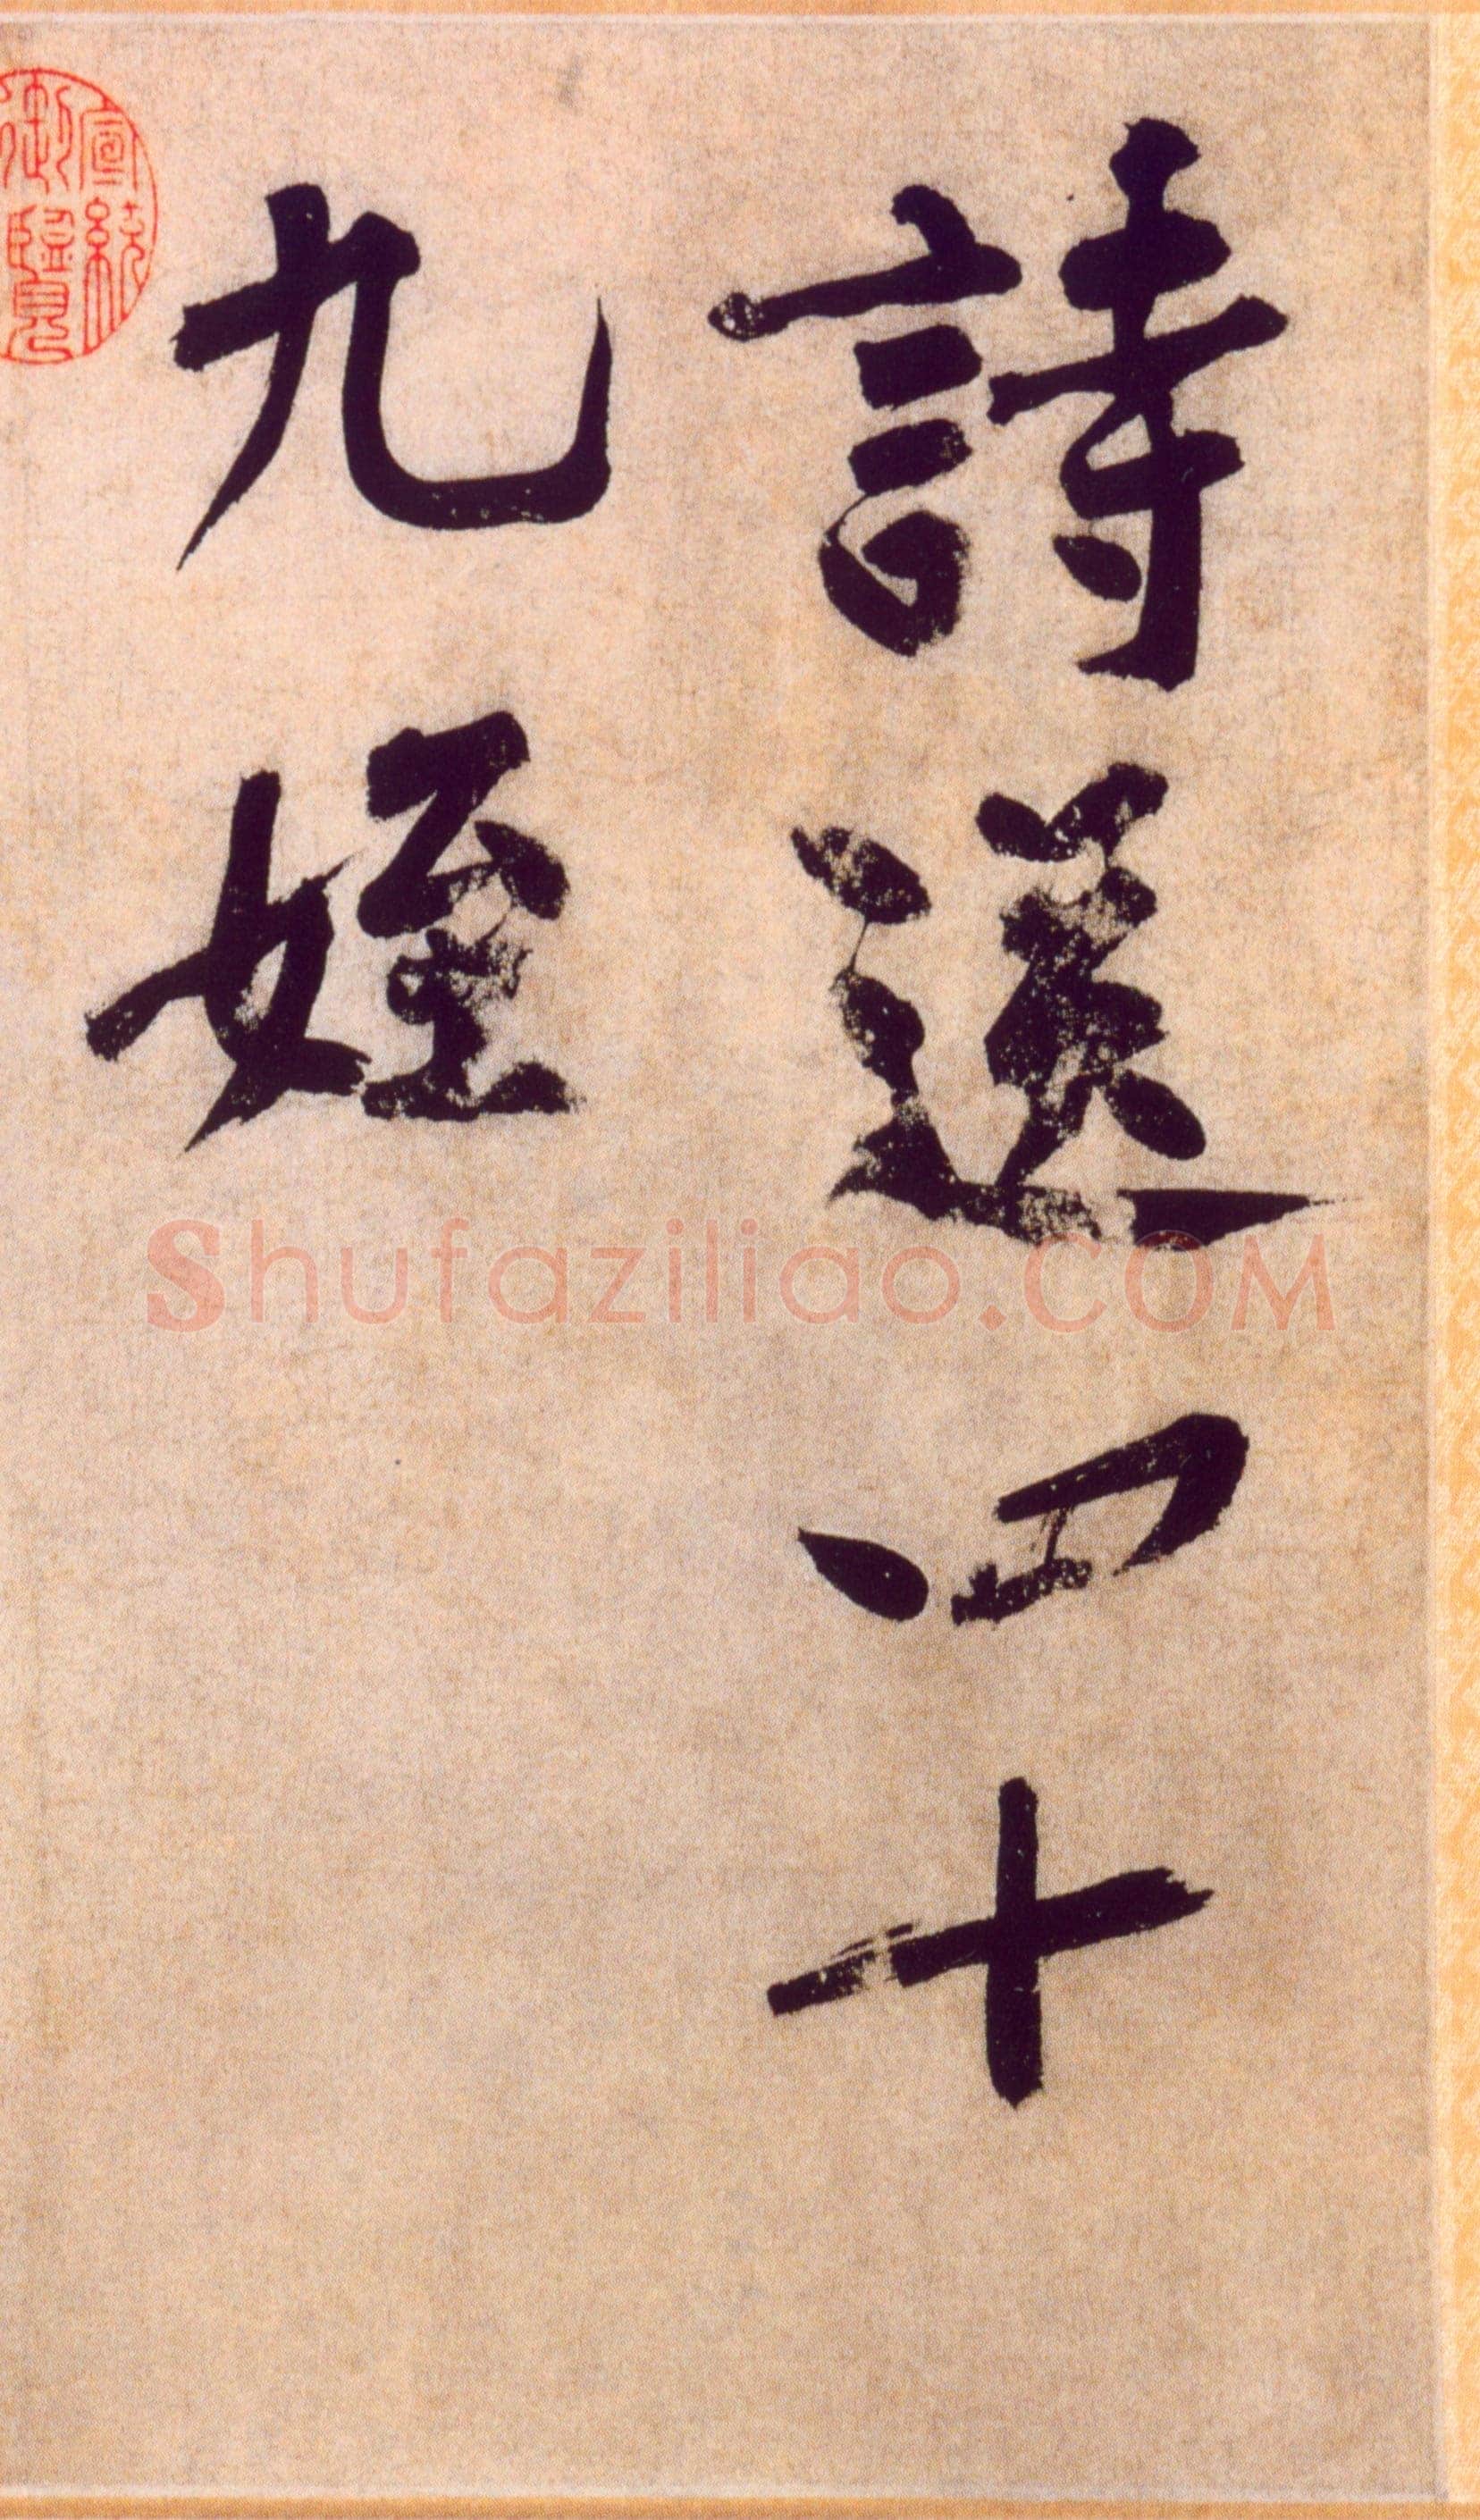 詩送四十
九姪
宣統
御覽
Shufaziliao.COM